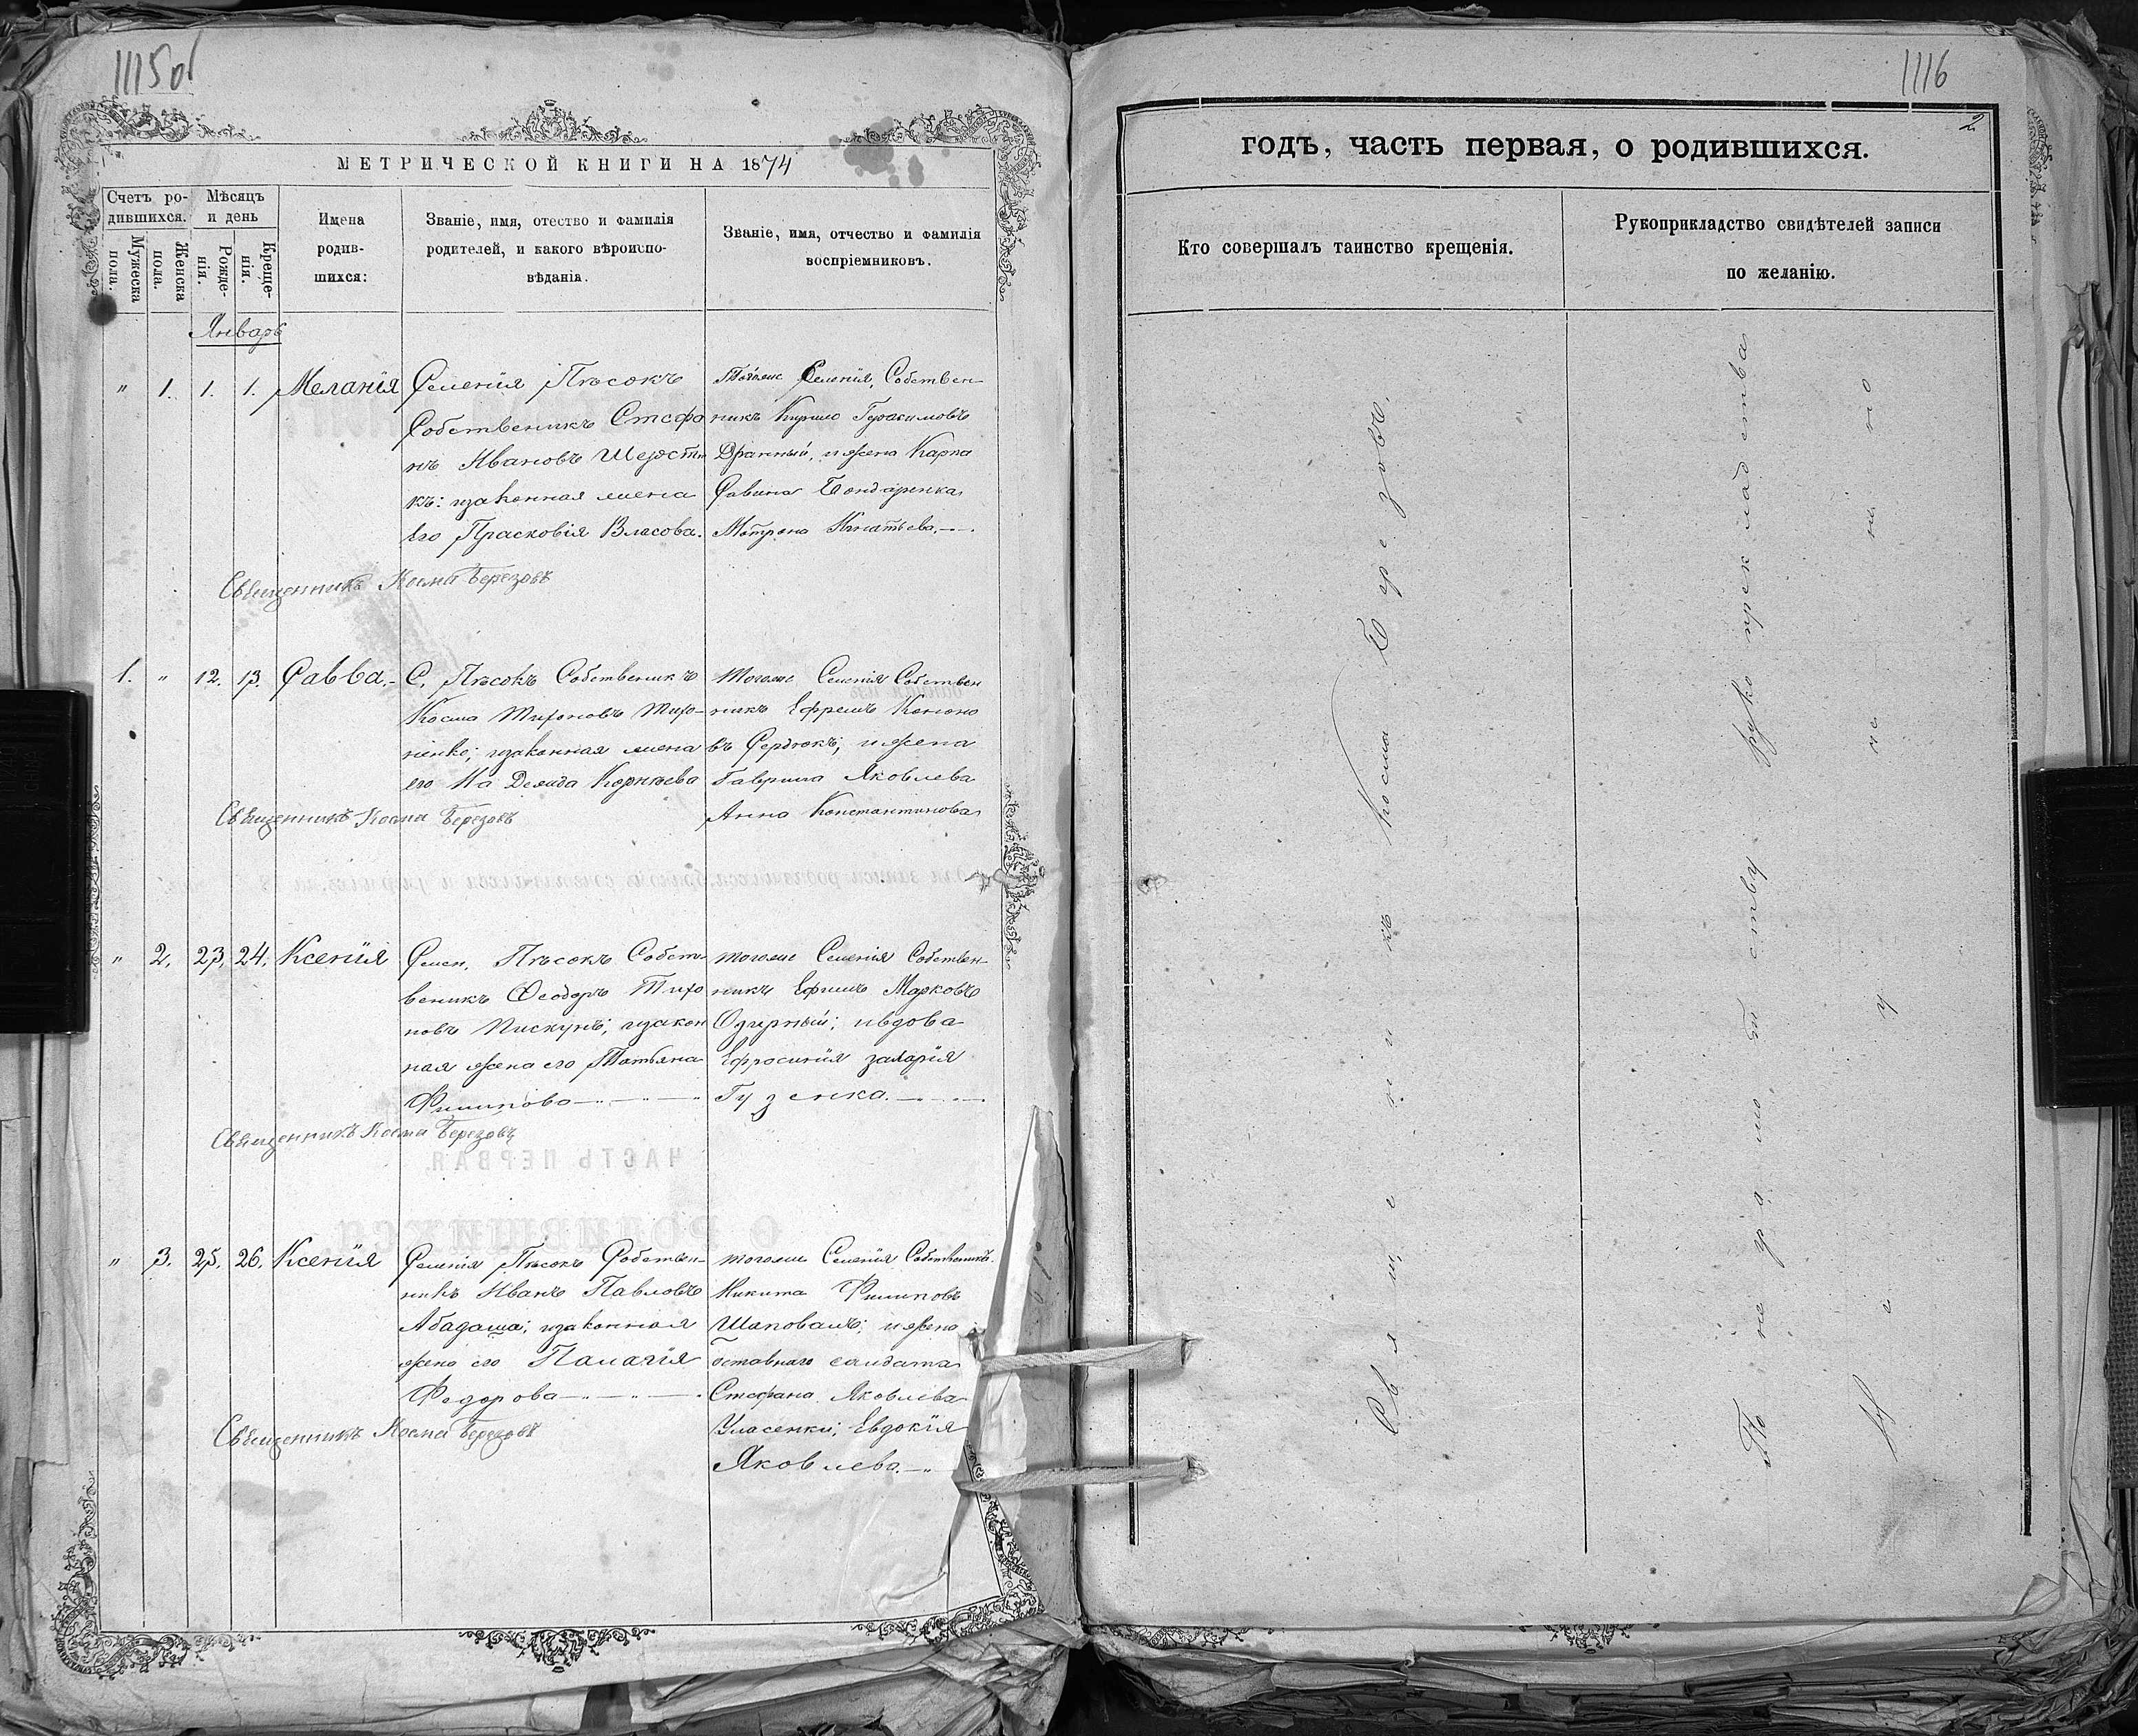 1115об
МЕТРИЧЕСКОЙ КНИГИ НА 1874
Счетъ ро-
дившихся.
Мужеска
пола.
Женска
пола.
Мѣсяцъ
и день
Рожде-
нія.
Креще-
нія.
Имена
родив-
шихся:
Званіе, имя, отество и фамилія
родителей, и какого вѣроиспо-
вѣданія.
Званіе, имя, отчество и фамилія
воспріемниковъ.
Январь
" 1. 1. 1. Меланія
Селенія Пѣсокъ
Собственикъ Стефа
нъ Ивановъ
къ: изаконная жена
его Прасковія Власова.
Тогоже Селенія, Собствен-
никъ Кирило Герасимовъ
Дранный, и жена Карпа
Савина Бондаренка
Мотрона Игнатьева.
Священникъ Косма Березовъ
1. " 12. 13. Савва.
С. Пѣсокъ Собственикъ
Косма Тихоновъ Тихо-
ненко; изаконная жена
его Корнѣева
тогоже Селенія Собствен
никъ Ефремъ Конано
въ Сердюкъ; и жена
Гаврила Яковлева
Анна Константинова
Священникъ Косма Березовъ
" 2. 23. 24. Ксенія
Селен. Пѣсокъ Собст
веникъ Феодоръ Тихо
новъ Пискунъ; изакон
ная жена его Татьяна
Филипова
тогоже Селенія Собствен-
никъ Ефимъ Марковъ
ивдова
Ефросинія захарія
Гузенка.
Священникъ Косма Березовъ
" 3. 25. 26. Ксенія
Селенія Пѣсокъ Собствен-
никъ Иванъ Павловъ
Абадаша; изаконная
жена его Палагія
Федорова
тогоже Селенія Собственикъ
Никита Филиповъ
Шаповалъ; и жена
отставнаго солдата
Стефана Яковлева
Уласенки; Евдокія
Яковлева.
Священникъ Косма Березовъ
1116
2
годъ, часть первая, о родившихся.
Кто совершалъ таинство крещенія.
Рукоприкладство свидѣтелей записи
по желанію.
Священникъ Косма Березовъ.
По не грамотству рукоприкладства
не учинено